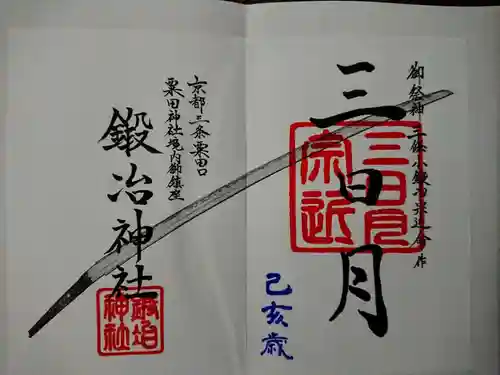 御祭神三條小鍛冶宗近命作
三日月
三日月
宗近
己亥歳
京都三条粟田口
粟田神社境内御鎮座
鍛冶神社
鍛冶
神社